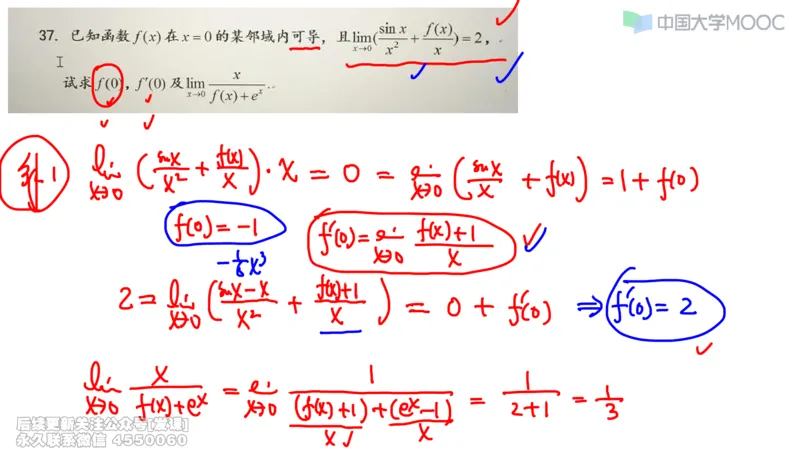 中国大学MOOC
37. 已知函数 f(x) 在 x=0 的某邻域内可导，且 lim_{x→0}(sin x / x² + f(x) / x)=2，
试求 f(0)，f′(0) 及 lim_{x→0} x / (f(x)+eˣ).
解1 lim_{x→0} (sinx / x² + f(x) / x)·x = 0 = lim_{x→0} (sinx / x + f(x)) = 1+f(0)
f(0)=-1 f′(0)=lim_{x→0} (f(x)+1) / x
-1/6 x³
2 = lim_{x→0} ((sinx-x) / x² + (f(x)+1) / x) = 0 + f′(0) ⇒ f′(0)=2
lim_{x→0} x / (f(x)+eˣ) = lim_{x→0} 1 / ((f(x)+1) / x + (eˣ-1) / x) = 1 / (2+1) = 1/3
后续更新关注公众号[考课]
永久联系微信 4550060